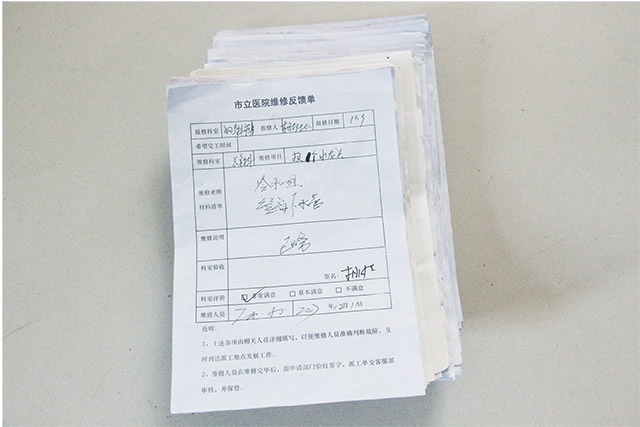 市立医院维修反馈单
报修科室 报修人 报修日期 12.9
希望完工时间
维修科室 维修项目 水龙头
维修更换
材料清单
维修说明
科室验收 签名:
科室评价 ☑非常满意 □基本满意 □不满意
维修人员 2017年12月11日
说明:
1、上述各项由相关人员详细填写,以便维修人员准确判断故障,及
时到达派工地点发展工作。
2、维修人员在维修完毕后,需申请部门验收签字,派工单交客服部
审核,并保管。